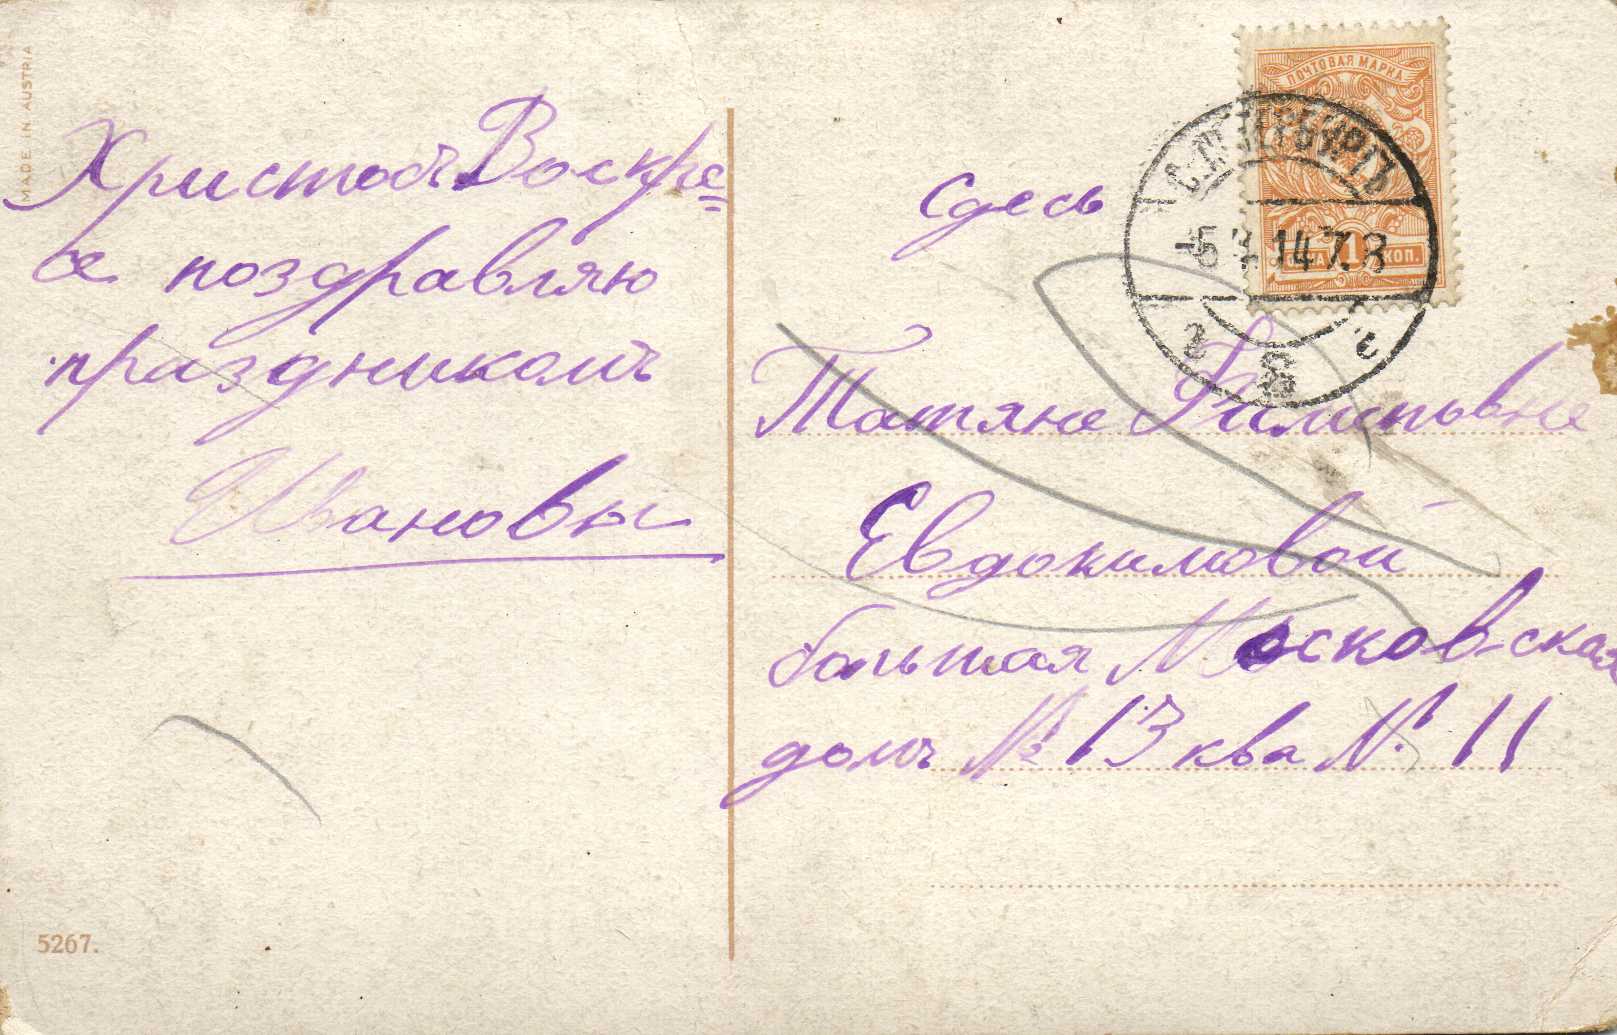 MADE IN AUSTRIA
Христосъ Воскре=
се поздравляю
праздникомъ
Ивановы
5267.
ПОЧТОВАЯ МАРКА
1
КОП.
С.ПЕТЕРБУРГЪ
5 4 14 7. 8
8
сдесь
Татяне Филиповне
Евдокимовой
большая Московская
домъ № 13 ква №. 11